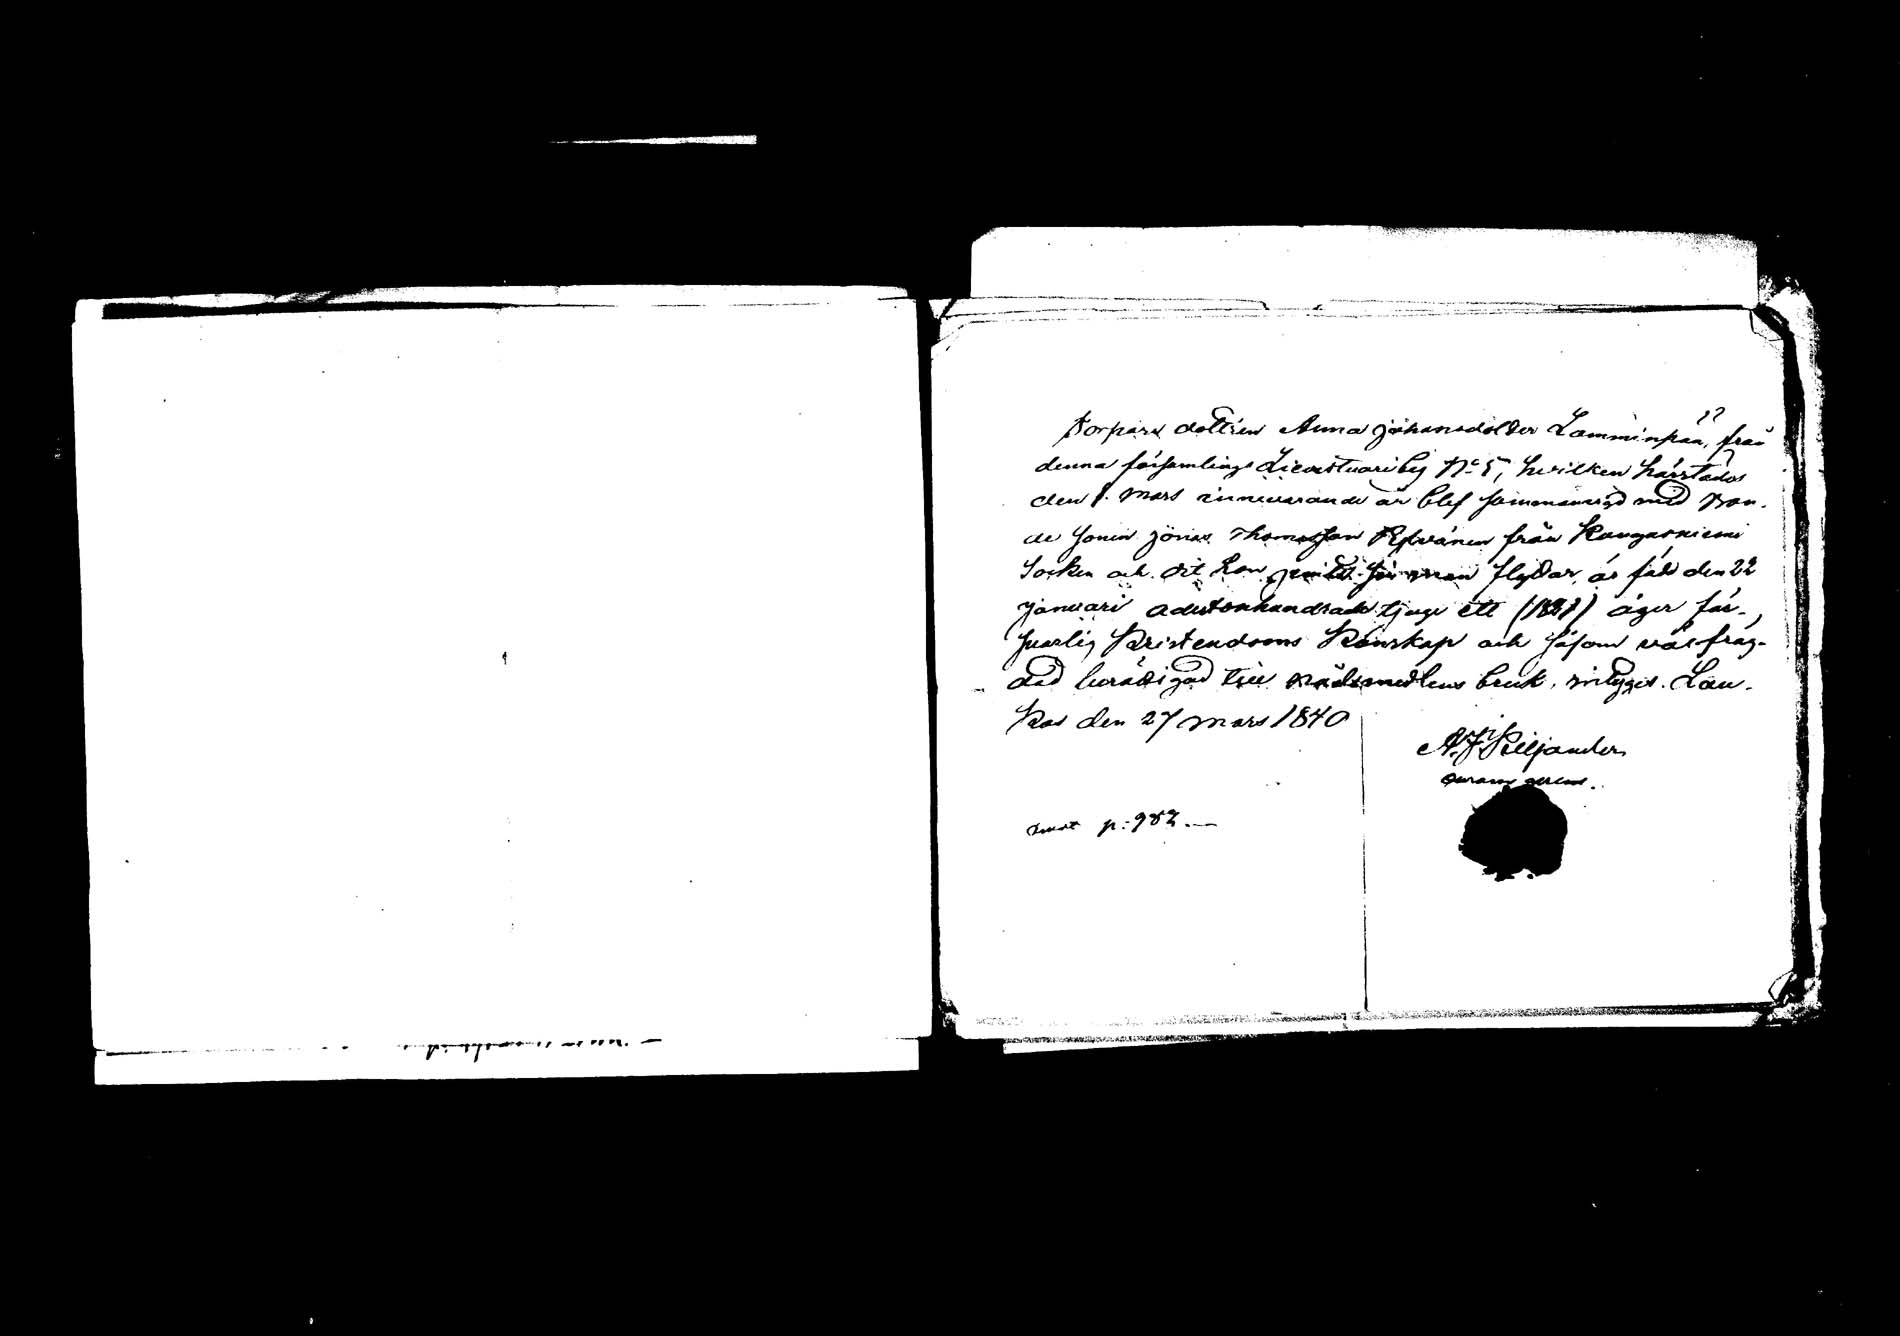 Torpare dottren Anna Johansdotter Lamminpää, från
denna församlings Lievestuori by No 5, hvilken härstädes
den 8 Mars innevarande år blef sammanvigd med Bon-
de sonen Jonas Thomasson Pylvänen från Kangasniemi
Socken och dit hon man flyttar, är född den 22
Januari adertonhundrade tjugu ett (1821) äger för-
svarlig Kristendoms Kunskap och såsom välfräg-
dad berättigad till nådemedlens bruk, intygas. Lau-
kas den 27 Mars 1840
A. F. Kiljander
p: 982.